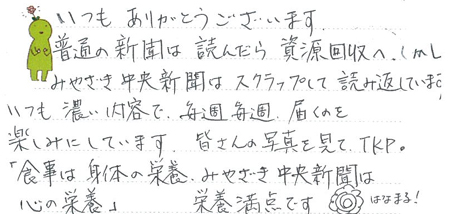 いつも ありがとうございます
普通の新聞は 読んだら 資源回収へ。しかし
みやざき中央新聞は スクラップして 読み返しています
いつも 濃い内容で、毎週毎週、届くのを
楽しみにしています。皆さんの写真を見て、TKP。
「食事は 身体の栄養、みやざき中央新聞は
心の栄養」 栄養満点です はなまる!